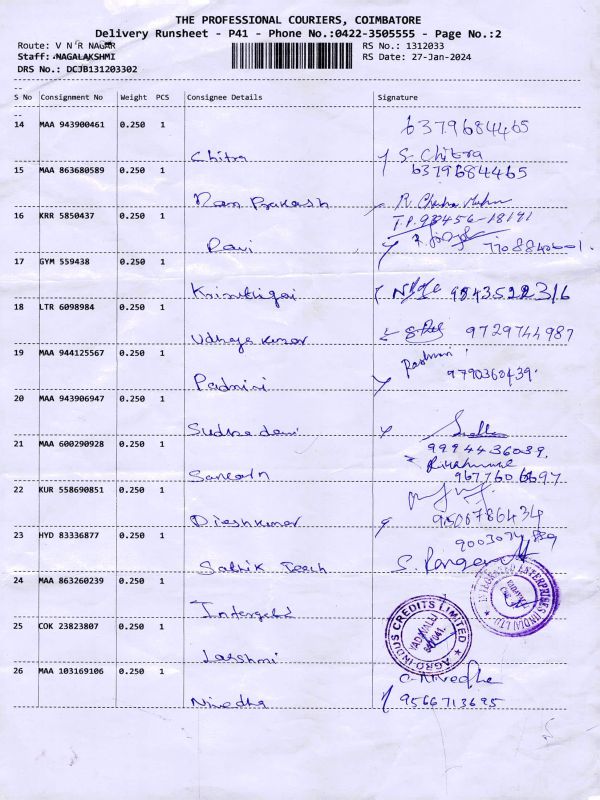 THE PROFESSIONAL COURIERS, COIMBATORE
Delivery Runsheet - P41 - Phone No.:0422-3505555 - Page No.:2
Route: V N R NAGAR
Staff: NAGALAKSHMI
DRS No.: DCJB131203302
RS No.: 1312033
RS Date: 27-Jan-2024
S No Consignment No Weight PCS Consignee Details Signature
14 MAA 943900461 0.250 1 6379684465
Chitra S. Chitra
15 MAA 863680589 0.250 1 6379684465
Ram Prakash
16 KRR 5850437 0.250 1
Ravi
17 GYM 559438 0.250 1
18 LTR 6098984 0.250 1
Udhaya kumar 9729744987
19 MAA 944125567 0.250 1
Padmini 9790360439
20 MAA 943906947 0.250 1
Sudha devi
21 MAA 600290928 0.250 1 9994436039
22 KUR 558690851 0.250 1
Dineshkumar 9500786434
23 HYD 83336877 0.250 1
24 MAA 863260239 0.250 1
25 COK 23823807 0.250 1
Lakshmi
AGRO INDUS CREDITS LIMITED
26 MAA 103169106 0.250 1 C. Nivedha
Nivedha 9566713695